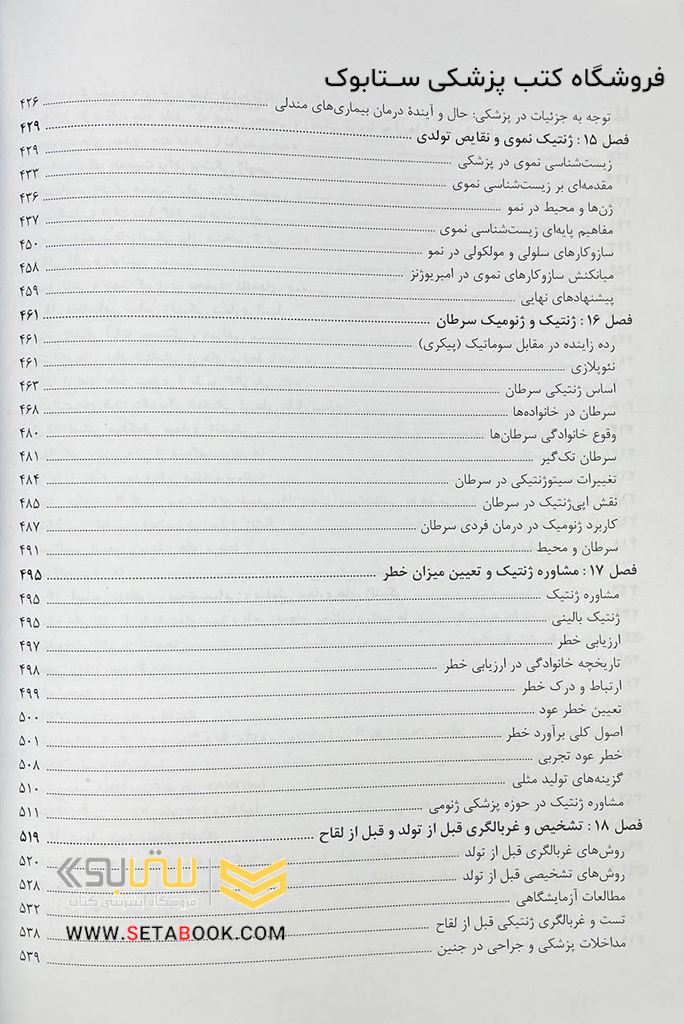 فروشگاه کتب پزشکی ســتابوک
توجه به جزئیات در پزشکی: حال و آیندهٔ درمان بیماری‌های مندلی ۴۲۶
فصل ۱۵: ژنتیک نموی و نقایص تولدی ۴۲۹
زیست‌شناسی نموی در پزشکی ۴۲۹
مقدمه‌ای بر زیست‌شناسی نموی ۴۳۳
ژن‌ها و محیط در نمو ۴۳۶
مفاهیم پایه‌ای زیست‌شناسی نموی ۴۳۷
سازوکارهای سلولی و مولکولی در نمو ۴۵۰
میانکنش سازوکارهای نموی در امبریوژنز ۴۵۸
پیشنهادهای نهایی ۴۵۹
فصل ۱۶: ژنتیک و ژنومیک سرطان ۴۶۱
رده زاینده در مقابل سوماتیک (پیکری) ۴۶۱
نئوپلازی ۴۶۱
اساس ژنتیکی سرطان ۴۶۳
سرطان در خانواده‌ها ۴۶۸
وقوع خانوادگی سرطان‌ها ۴۸۰
سرطان تک‌گیر ۴۸۱
تغییرات سیتوژنتیکی در سرطان ۴۸۴
نقش اپی‌ژنتیک در سرطان ۴۸۵
کاربرد ژنومیک در درمان فردی سرطان ۴۸۷
سرطان و محیط ۴۹۱
فصل ۱۷: مشاوره ژنتیک و تعیین میزان خطر ۴۹۵
مشاوره ژنتیک ۴۹۵
ژنتیک بالینی ۴۹۵
ارزیابی خطر ۴۹۷
تاریخچه خانوادگی در ارزیابی خطر ۴۹۸
ارتباط و درک خطر ۴۹۹
تعیین خطر عود ۵۰۰
اصول کلی برآورد خطر ۵۰۱
خطر عود تجربی ۵۰۸
گزینه‌های تولید مثلی ۵۱۰
مشاوره ژنتیک در حوزه پزشکی ژنومی ۵۱۱
فصل ۱۸: تشخیص و غربالگری قبل از تولد و قبل از لقاح ۵۱۹
روش‌های غربالگری قبل از تولد ۵۲۰
روش‌های تشخیصی قبل از تولد ۵۲۸
مطالعات آزمایشگاهی ۵۳۲
تست و غربالگری ژنتیکی قبل از لقاح ۵۳۸
مداخلات پزشکی و جراحی در جنین ۵۳۹
ستابوک
فروشگاه اینترنتی کتاب
WWW.SETABOOK.COM